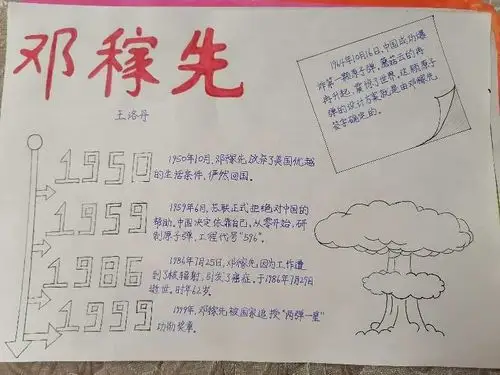 邓稼先
王洛丹
1964年10月16日,中国成功爆
炸第一颗原子弹,蘑菇云的再
再升起,震惊了世界,这颗原子
弹的设计方案就是由邓稼先
签字确定的。
1950
1950年10月,邓稼先放弃了美国优越
的生活条件,俨然回国。
1959
1959年6月,苏联正式拒绝对中国的
帮助,中国决定依靠自己,从零开始,研
制原子弹,工程代号"596"。
1986
1986年7月25日,邓稼先,因为工作遭
到了核辐射,引发了癌症,于1986年7月29日
逝世,时年62岁。
1999
1999年,邓稼先被国家追授"两弹一星"
功勋奖章。